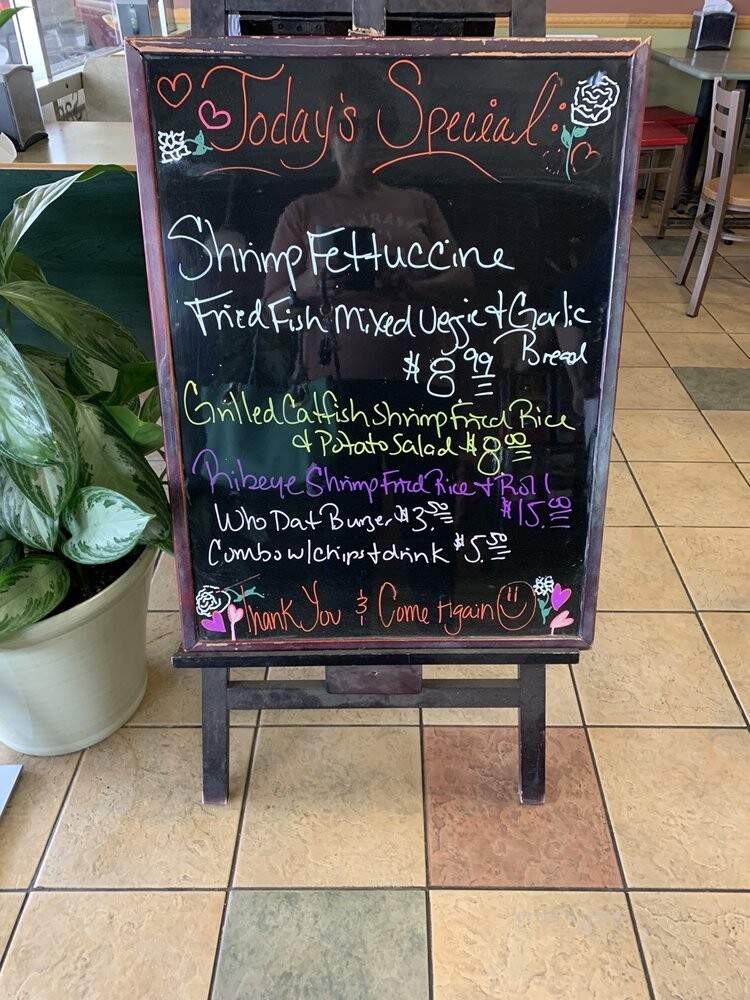 Today's Special:
Shrimp Fettuccine
Fried Fish Mixed Veggie + Garlic
Bread
$8.99
Grilled Catfish Shrimp Fried Rice
& Potato Salad $8.00
Ribeye Shrimp Fried Rice + Roll
$15.00
Who Dat Burger $3.50
Combo w/chips + drink $5.50
Thank You & Come Again